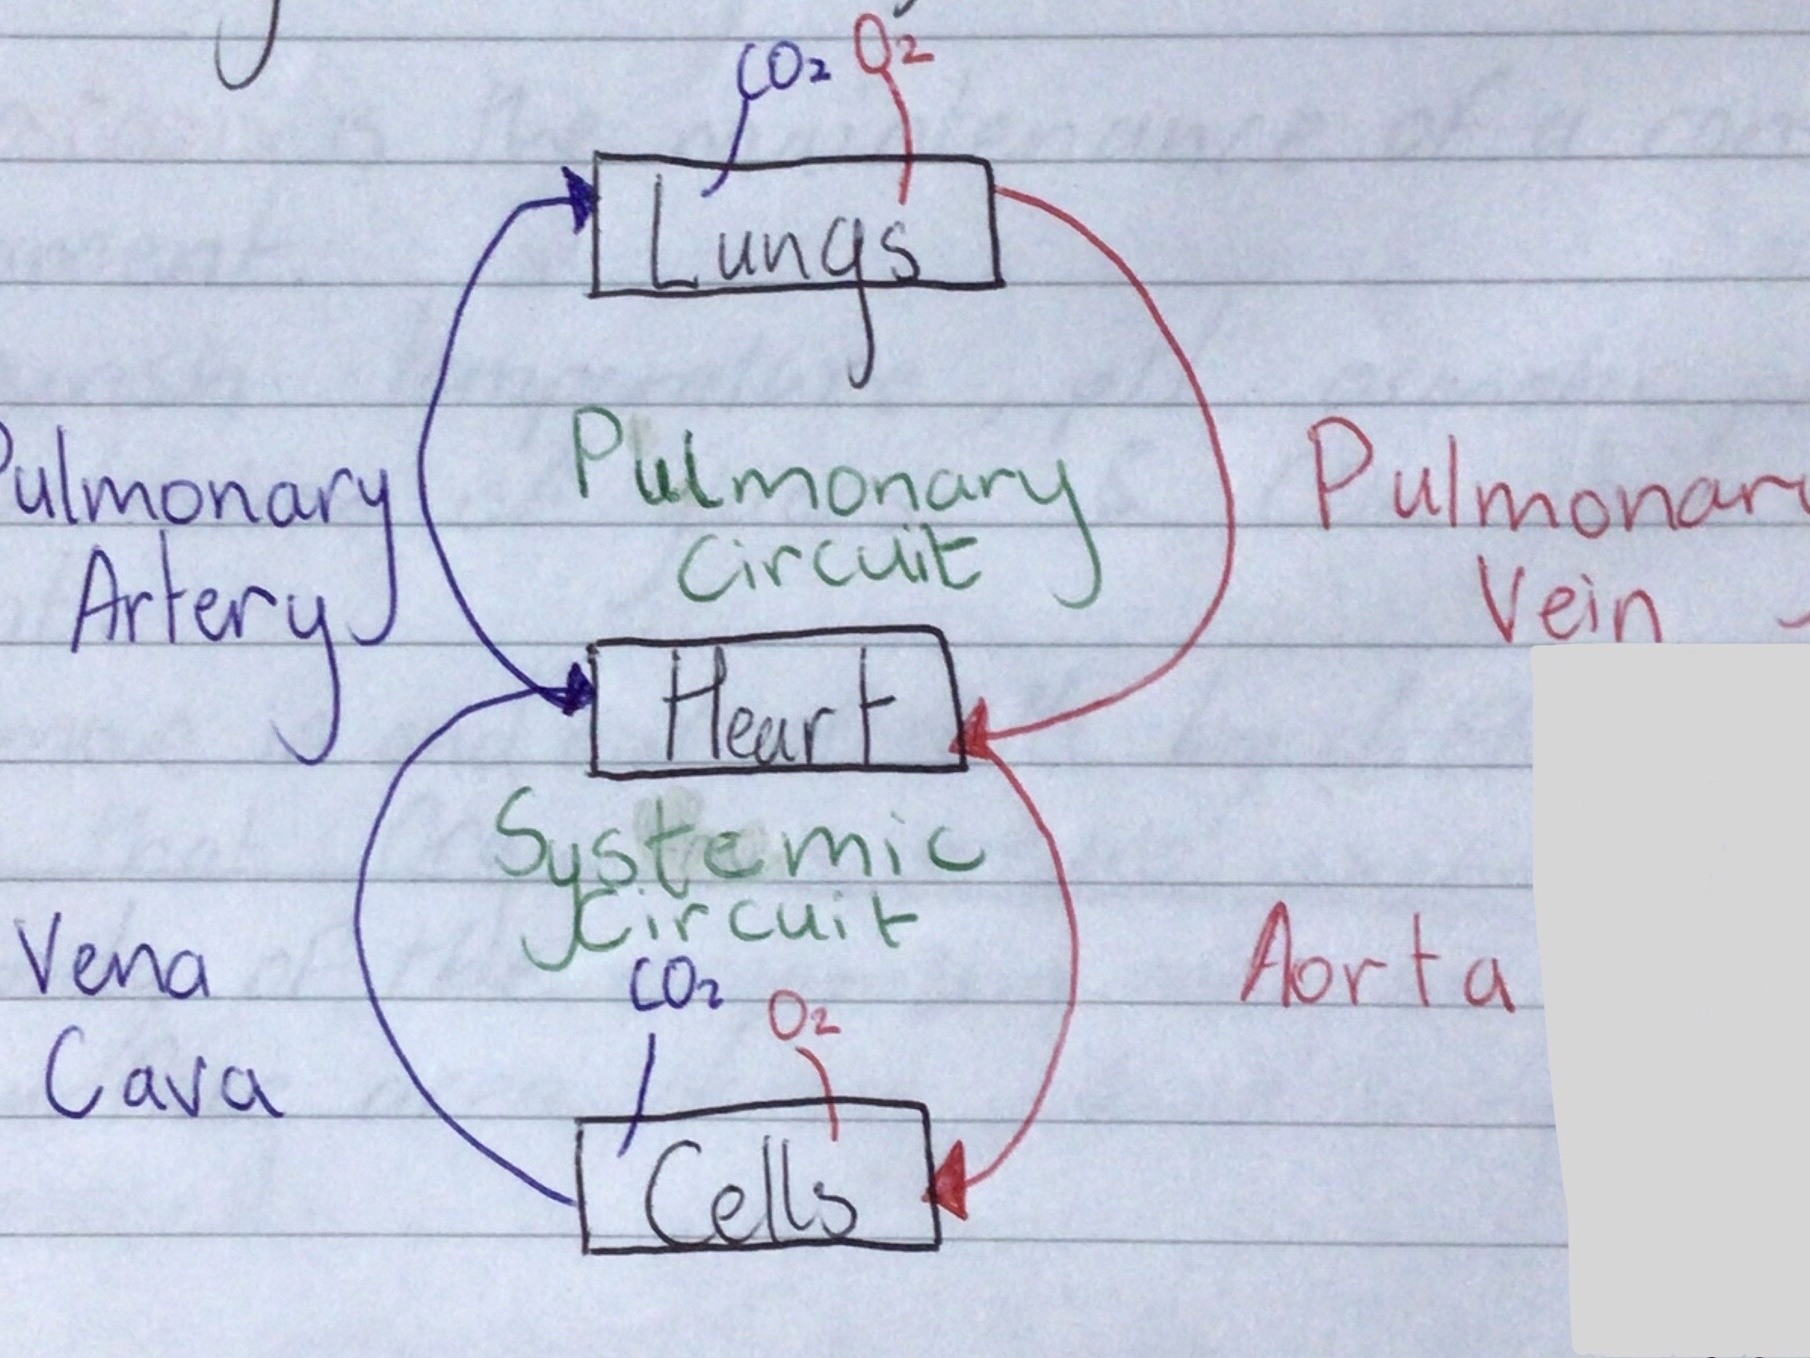 CO₂ O₂
Lungs
Pulmonary
Artery
Pulmonary
Circuit
Pulmonary
Vein
Heart
Systemic
Circuit
Vena
Cava
Aorta
CO₂ O₂
Cells